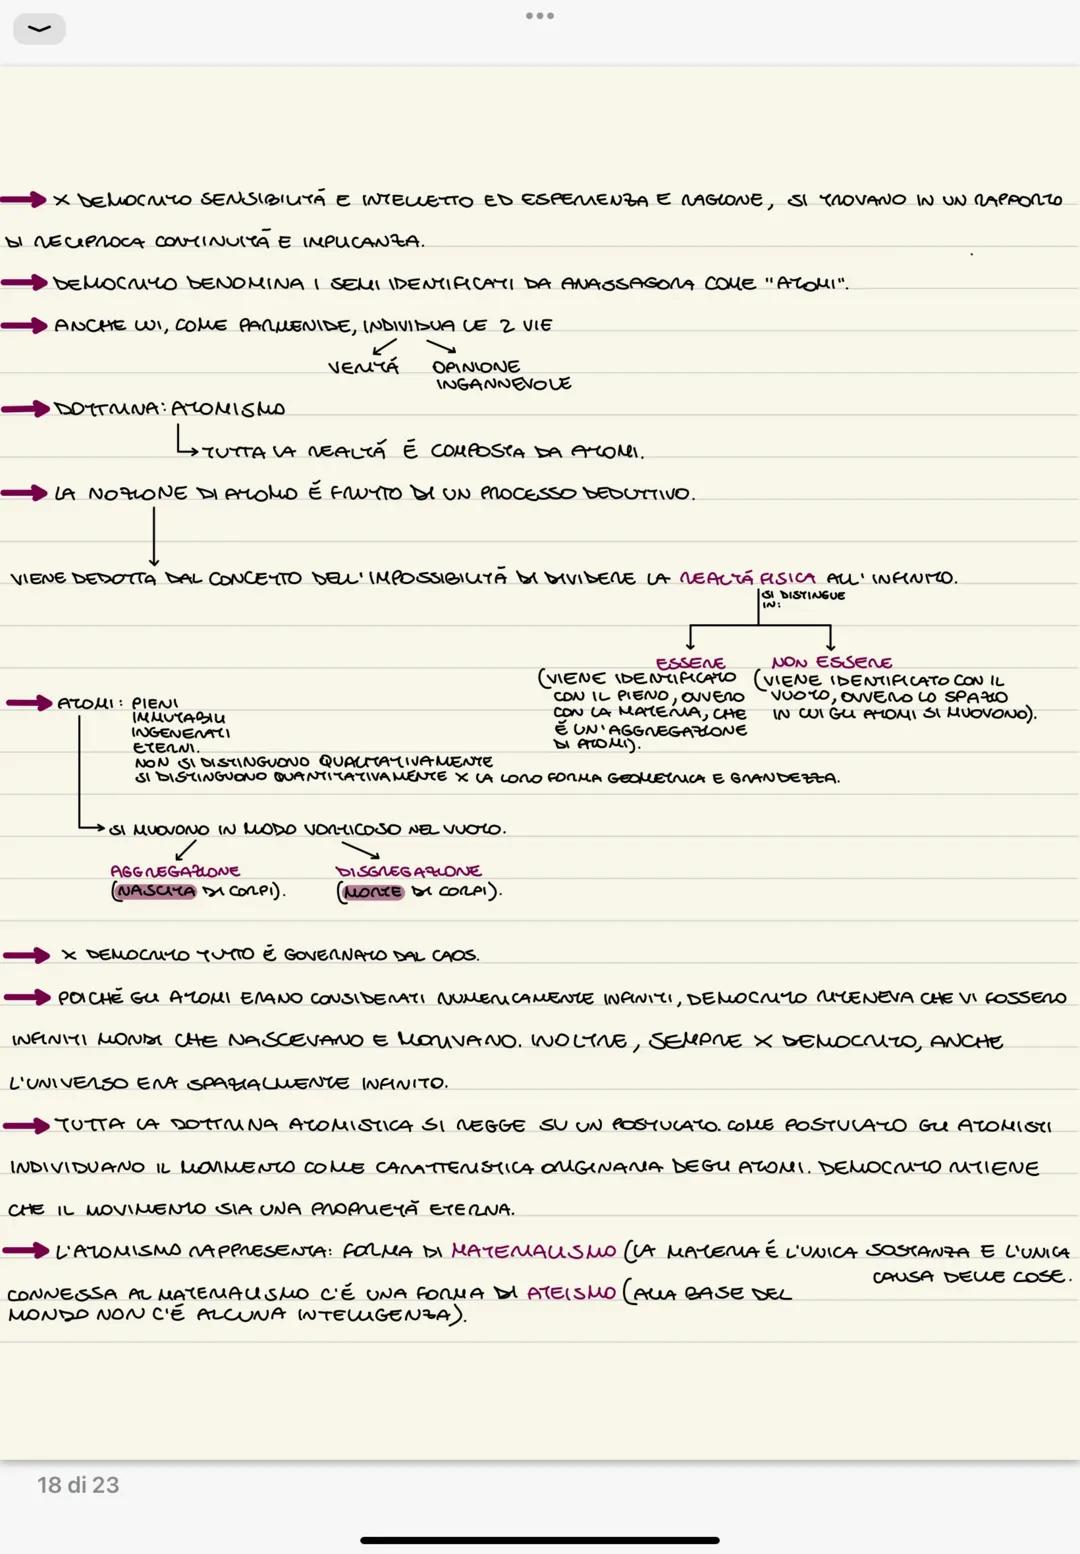 X DEMOCRITO SENSIBILITÁ E INTELLETTO ED ESPERIENZA E RAGIONE, SI TROVANO IN UN RAPPORTO
DI RECIPROCA CONTINUITÁ E IMPLICANZA.
DEMOCRITO DENOMINA I SEMI IDENTIFICATI DA ANASSAGORA COME "ATOMI".
ANCHE LUI, COME PARMENIDE, INDIVIDUA LE 2 VIE
VERITÁ OPINIONE
INGANNEVOLE
DOTTRINA: ATOMISMO
TUTTA LA REALTÁ É COMPOSTA DA ATOMI.
LA NOZIONE DI ATOMO É FRUTTO DI UN PROCESSO DEDUTTIVO.
VIENE DEDOTTA DAL CONCETTO DELL'IMPOSSIBILITÁ DI DIVIDERE LA REALTÁ FISICA ALL'INFINITO.
SI DISTINGUE
IN:
ESSERE
(VIENE IDENTIFICATO
CON IL PIENO, OVVERO
CON LA MATERIA, CHE
É UN'AGGREGAZIONE
DI ATOMI).
NON ESSERE
(VIENE IDENTIFICATO CON IL
VUOTO, OVVERO LO SPAZIO
IN CUI GLI ATOMI SI MUOVONO).
ATOMI: PIENI
IMMUTABILI
INGENERATI
ETERNI.
NON SI DISTINGUONO QUALITATIVAMENTE
SI DISTINGUONO QUANTITATIVAMENTE X LA LORO FORMA GEOMETRICA E GRANDEZZA.
SI MUOVONO IN MODO VORTICOSO NEL VUOTO.
AGGREGAZIONE
(NASCITA DI CORPI).
DISGREGAZIONE
(MORTE DI CORPI).
X DEMOCRITO TUTTO É GOVERNATO DAL CAOS.
POICHÉ GLI ATOMI ERANO CONSIDERATI NUMERICAMENTE INFINITI, DEMOCRITO RITENEVA CHE VI FOSSERO
INFINITI MONDI CHE NASCEVANO E MORIVANO. INOLTRE, SEMPRE X DEMOCRITO, ANCHE
L'UNIVERSO ERA SPAZIALMENTE INFINITO.
TUTTA LA DOTTRINA ATOMISTICA SI REGGE SU UN POSTULATO. COME POSTULATO GLI ATOMISTI
INDIVIDUANO IL MOVIMENTO COME CARATTERISTICA ORIGINARIA DEGLI ATOMI. DEMOCRITO RITIENE
CHE IL MOVIMENTO SIA UNA PROPRIETÁ ETERNA.
L'ATOMISMO RAPPRESENTA: FORMA DI MATERIALISMO (LA MATERIA É L'UNICA SOSTANZA E L'UNICA
CAUSA DELLE COSE.
CONNESSA AL MATERIALISMO C'É UNA FORMA DI ATEISMO (ALLA BASE DEL
MONDO NON C'É ALCUNA INTELLIGENZA).
18 di 23